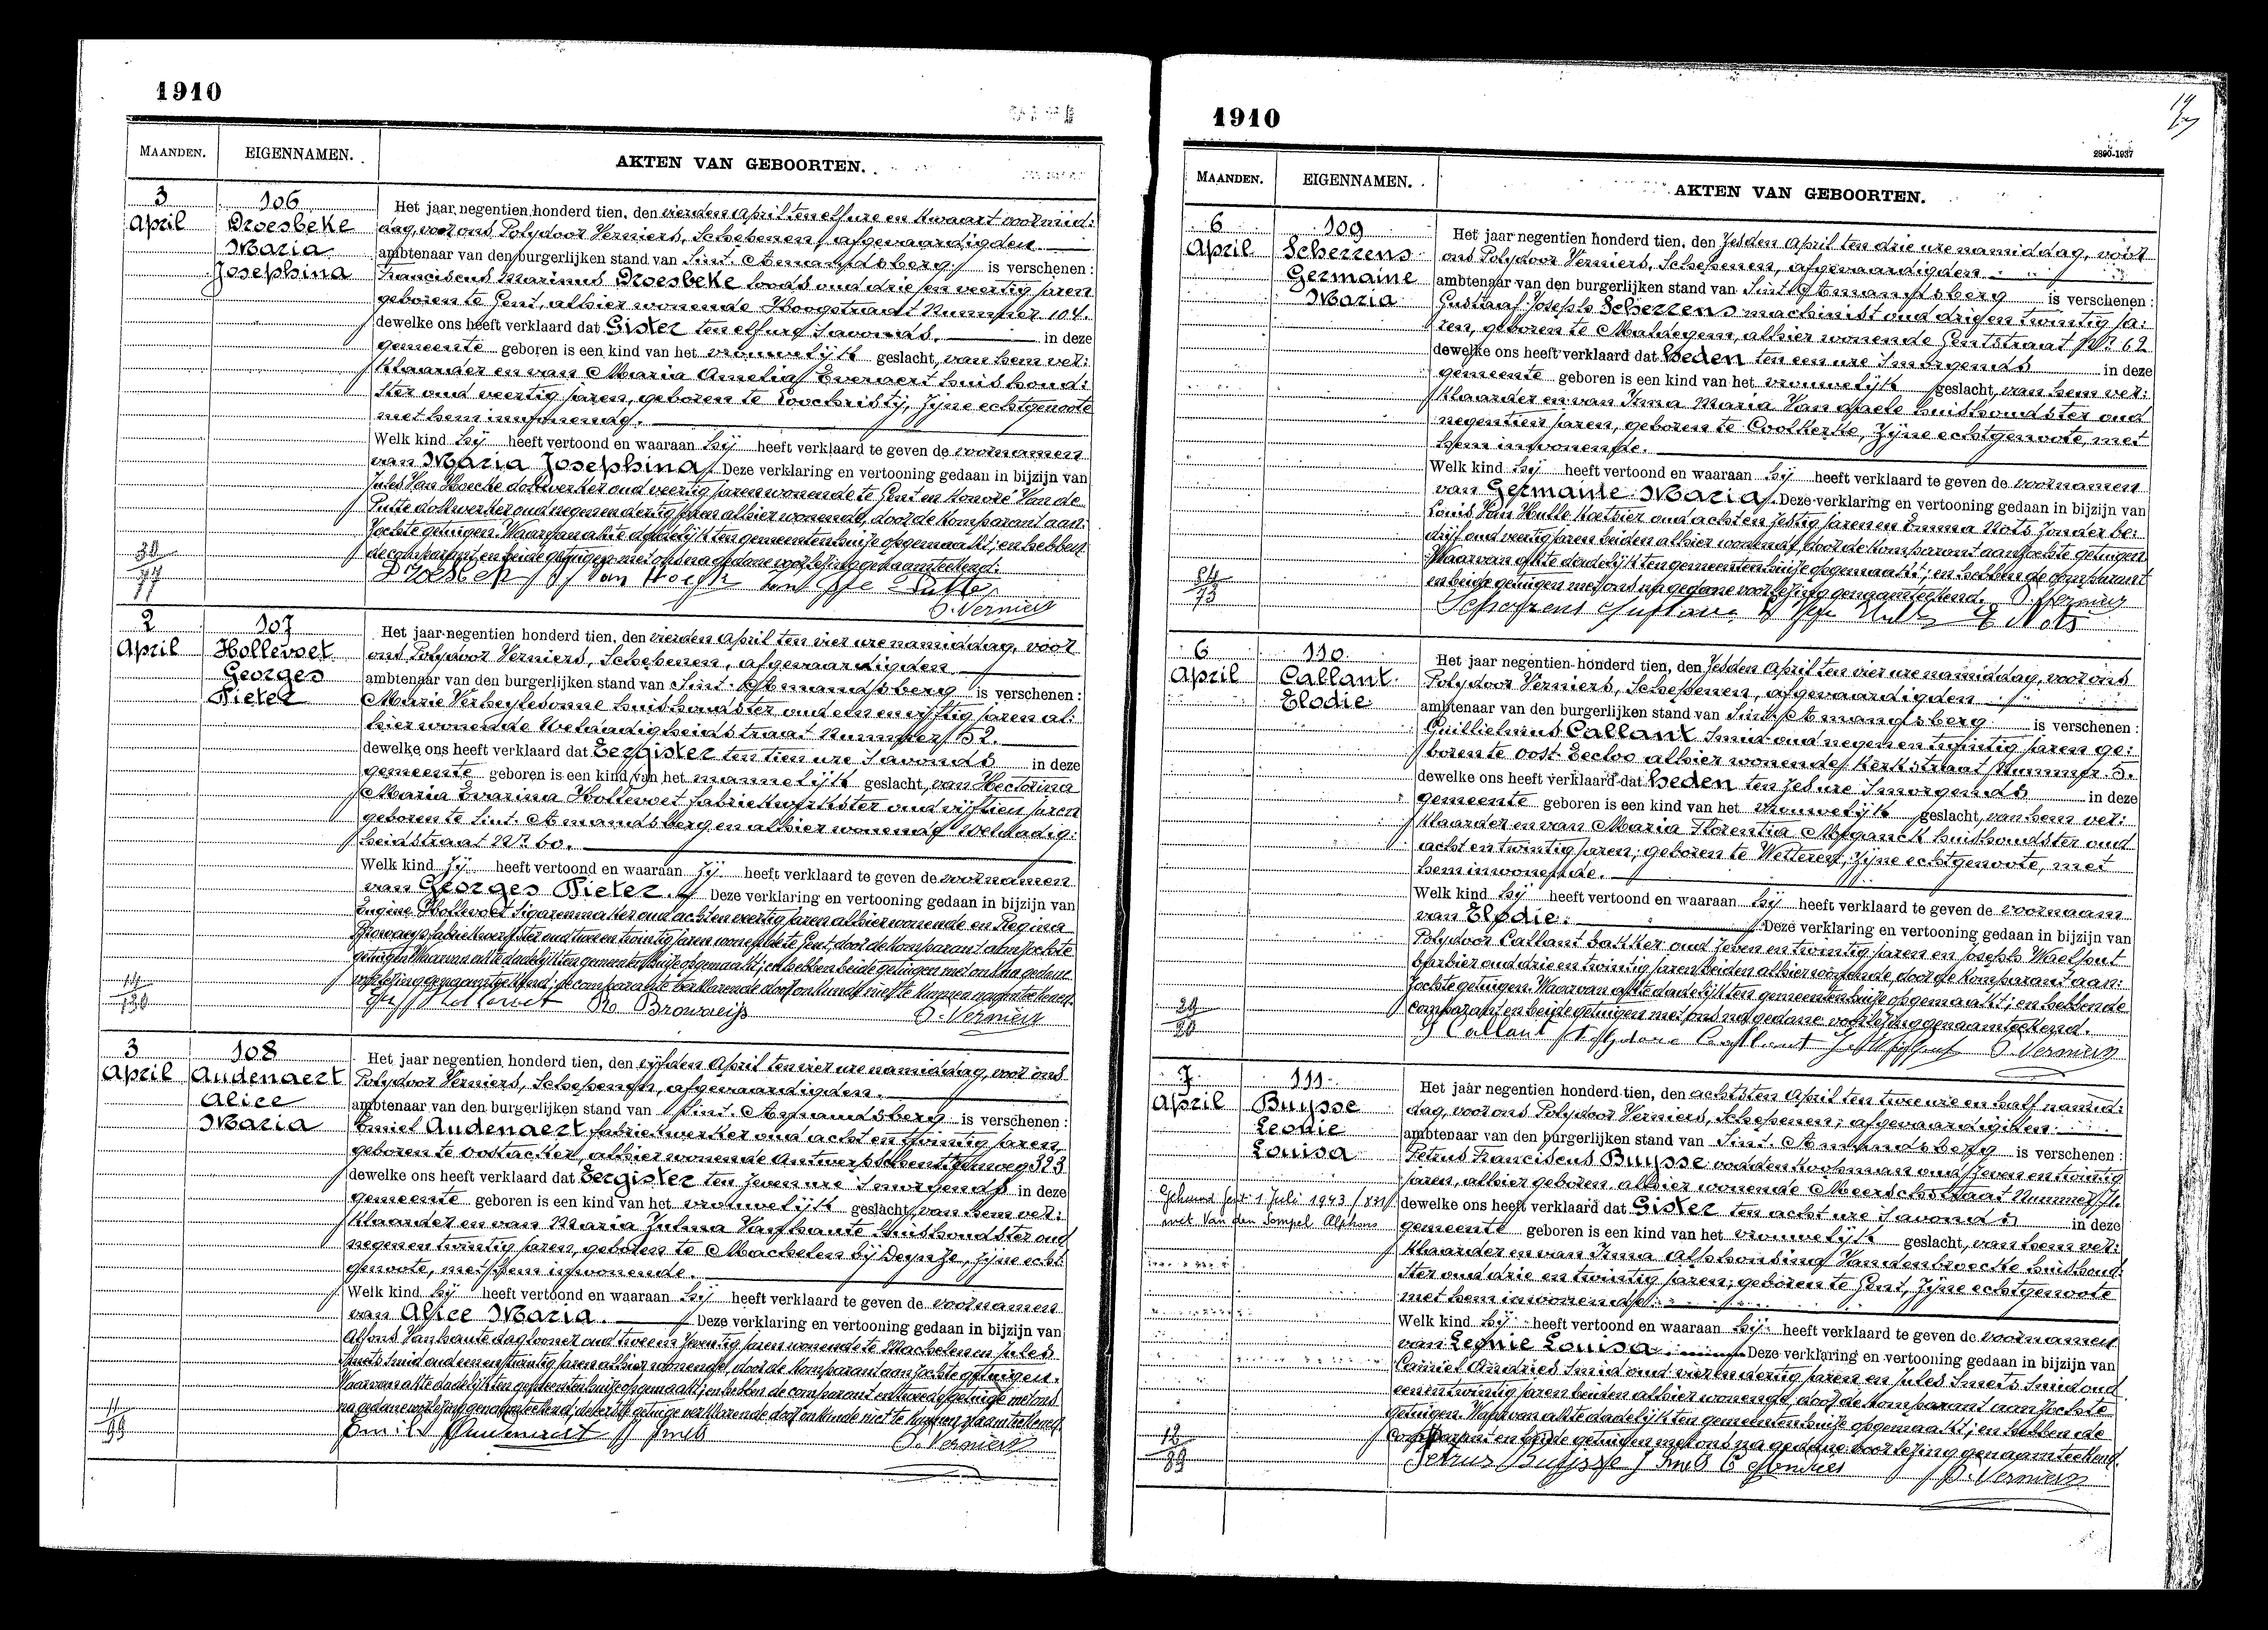 1910
MAANDEN. EIGENNAMEN. AKTEN VAN GEBOORTEN.
3 April
106
Droesbeke
Maria
Josephina
Het jaar negentien honderd tien, den vierden April ten elf ure en kwaart voormid:
dag, voor ons Polydoor Verniers, Schepenen, afgevaardigden
ambtenaar van den burgerlijken stand van Sint. Amandsberg is verschenen:
Franciscus Marinus Droesbeke loods oud drie en veertig jaren
geboren te Gent, alhier wonende Hoogstraat Nummer 104.
dewelke ons heeft verklaard dat Gister ten elf ure 's avonds. in deze
gemeente geboren is een kind van het vrouwelijk geslacht, van hem ver:
klaarder en van Maria Amelia Everaert huishoud:
ster oud veertig jaren, geboren te Loochristij, zijne echtgenoote
met hem inwonende.
Welk kind hij heeft vertoond en waaraan hij heeft verklaard te geven de voornamen
van Maria Josephina. Deze verklaring en vertooning gedaan in bijzijn van
Jules Van Hoecke dokwerker oud veertig jaren wonende te Gent en Honoré Van de
Putte dokwerker oud negen en dertig jaren alhier wonende, door de komparant aan:
zochte getuigen. Waarvan akte dadelijk ten gemeentenhuize opgemaakt; en hebben
de comparant en beide getuigen met ons na gedane voorlezing genaamteekend.
P. Verniers
2 April
107
Hollevoet
Georges
Pieter
Het jaar negentien honderd tien, den vierden April ten vier ure namiddag, voor
ons Polydoor Verniers, Schepenen, afgevaardigden
ambtenaar van den burgerlijken stand van Sint. Amandsberg is verschenen:
Marie Verheylesonne huishoudster oud een en vijftig jaren al:
hier wonende Weldadigheidstraat Nummer 52.
dewelke ons heeft verklaard dat Eergister ten tien ure 's avonds in deze
gemeente geboren is een kind van het mannelijk geslacht, van Hectorina
Maria Evarina Hollevoet fabriekwerkster oud vijftien jaren
geboren te Sint. Amandsberg en alhier wonende Weldadig:
heidstraat Nr. 60.
Welk kind zij heeft vertoond en waaraan zij heeft verklaard te geven de voornamen
van Georges Pieter. Deze verklaring en vertooning gedaan in bijzijn van
Eugine Hollevoet sigarenmaker oud acht en veertig jaren alhier wonende en Regina
Browaeys fabriekwerkster oud twee en twintig jaren wonende te Gent, door de komparant aanzochte
getuigen. Waarvan akte dadelijk ten gemeentenhuize opgemaakt; en hebben beide getuigen met ons na gedane
voorlezing genaamteekend; de comparante verklarende door onkunde niet te kunnen naamteekenen.
Browaeijs P. Verniers
3 April
108
Audenaert
Alice
Maria
Het jaar negentien honderd tien, den vijfden April ten vier ure namiddag, voor ons
Polydoor Verniers, Schepenen, afgevaardigden.
ambtenaar van den burgerlijken stand van Sint. Amandsberg is verschenen:
Emiel Audenaert fabriekwerker oud acht en twintig jaren,
geboren te Oostacker, alhier wonende Antwerpschensteenweg 323
dewelke ons heeft verklaard dat Eergister ten zeven ure 's morgends in deze
gemeente geboren is een kind van het vrouwelijk geslacht, van hem ver:
klaarder en van Maria Zulma Vanhaute huishoudster oud
negen en twintig jaren, geboren te Machelen bij Deynze, zijne echt:
genoote, met hem inwonende.
Welk kind hij heeft vertoond en waaraan hij heeft verklaard te geven de voornamen
van Alice Maria. Deze verklaring en vertooning gedaan in bijzijn van
Alfons Vanhaute daglooner oud twee en zeventig jaren wonende te Machelen en Jules
Smets smid oud een en twintig jaren alhier wonende, door de komparant aanzochte getuigen.
Waarvan akte dadelijk ten gemeentenhuize opgemaakt; en hebben de comparant en tweede getuige met ons
na gedane voorlezing genaamteekend; de eerste getuige verklarende door onkunde niet te kunnen naamteekenen.
Emile Audenaert J Smets P. Verniers
1910
2890-1937
MAANDEN. EIGENNAMEN. AKTEN VAN GEBOORTEN.
6 April
109
Scherrens
Germaine
Maria
Het jaar negentien honderd tien, den zesden April ten drie ure namiddag, voor
ons Polydoor Verniers, Schepenen, afgevaardigden
ambtenaar van den burgerlijken stand van Sint. Amandsberg is verschenen:
Gustaaf Joseph Scherrens machinist oud drie en twintig ja:
ren, geboren te Maldegem, alhier wonende Gentstraat Nr. 62
dewelke ons heeft verklaard dat heden ten een ure 's morgends in deze
gemeente geboren is een kind van het vrouwelijk geslacht, van hem ver:
klaarder en van Irma Maria Van daele huishoudster oud
negentien jaren, geboren te Coolkerke, zijne echtgenoote, met
hem inwonende.
Welk kind hij heeft vertoond en waaraan hij heeft verklaard te geven de voornamen
van Germaine Maria. Deze verklaring en vertooning gedaan in bijzijn van
Louis Van Hulle koetsier oud acht en zestig jaren en Emma Nots zonder be:
drijf oud veertig jaren beiden alhier wonende, door de komparant aanzochte getuigen.
Waarvan akte dadelijk ten gemeentenhuize opgemaakt; en hebben de comparant
en beide getuigen met ons na gedane voorlezing genaamteekend. P. Verniers
E Nots
6 April
110
Callant
Elodie
Het jaar negentien honderd tien, den zesden April ten vier ure namiddag, voor ons
Polydoor Verniers, Schepenen, afgevaardigden
ambtenaar van den burgerlijken stand van Sint. Amandsberg is verschenen:
Guillielmus Callant smid oud negen en twintig jaren ge:
boren te Oost-Eecloo alhier wonende Kerkstraat Nummer 5.
dewelke ons heeft verklaard dat heden ten zes ure 's morgends in deze
gemeente geboren is een kind van het vrouwelijk geslacht, van hem ver:
klaarder en van Maria Florentia Meganck huishoudster oud
acht en twintig jaren, geboren te Wetteren, zijne echtgenoote, met
hem inwonende.
Welk kind hij heeft vertoond en waaraan hij heeft verklaard te geven de voornaam
van Elodie. Deze verklaring en vertooning gedaan in bijzijn van
Polydoor Callant bakker oud zeven en twintig jaren en Joseph Waelput
barbier oud drie en twintig jaren beiden alhier wonende door de komparant aan:
zochte getuigen. Waarvan akte dadelijk ten gemeentenhuize opgemaakt; en hebben de
comparant en beide getuigen met ons na gedane voorlezing genaamteekend.
G Callant Polydore Callant P. Verniers
7 April
111
Buysse
Leonie
Louisa
Gehuwd Gent 1 Juli 1943 (831)
met Van den Sompel Alphons
Het jaar negentien honderd tien, den achtsten April ten twee ure en half namid:
dag, voor ons Polydoor Verniers, Schepenen, afgevaardigden
ambtenaar van den burgerlijken stand van Sint. Amandsberg is verschenen:
Petrus Franciscus Buysse voddenkoopman oud zeven en twintig
jaren, alhier geboren, alhier wonende Meerschstraat Nummer 71.
dewelke ons heeft verklaard dat Gister ten acht ure 's avonds in deze
gemeente geboren is een kind van het vrouwelijk geslacht, van hem ver:
klaarder en van Irma Alphonsina Vandenbroecke huishoud:
ster oud drie en twintig jaren, geboren te Gent, zijne echtgenoote
met hem inwonende.
Welk kind hij heeft vertoond en waaraan hij heeft verklaard te geven de voornamen
van Leonie Louisa. Deze verklaring en vertooning gedaan in bijzijn van
Camiel Andries smid oud vier en dertig jaren en Jules Smets smid oud
een en twintig jaren beiden alhier wonende, door de komparant aanzochte
getuigen. Waarvan akte dadelijk ten gemeentenhuize opgemaakt; en hebben de
comparant en beide getuigen met ons na gedane voorlezing genaamteekend.
Petrus Buysse J Smets C Andries P. Verniers